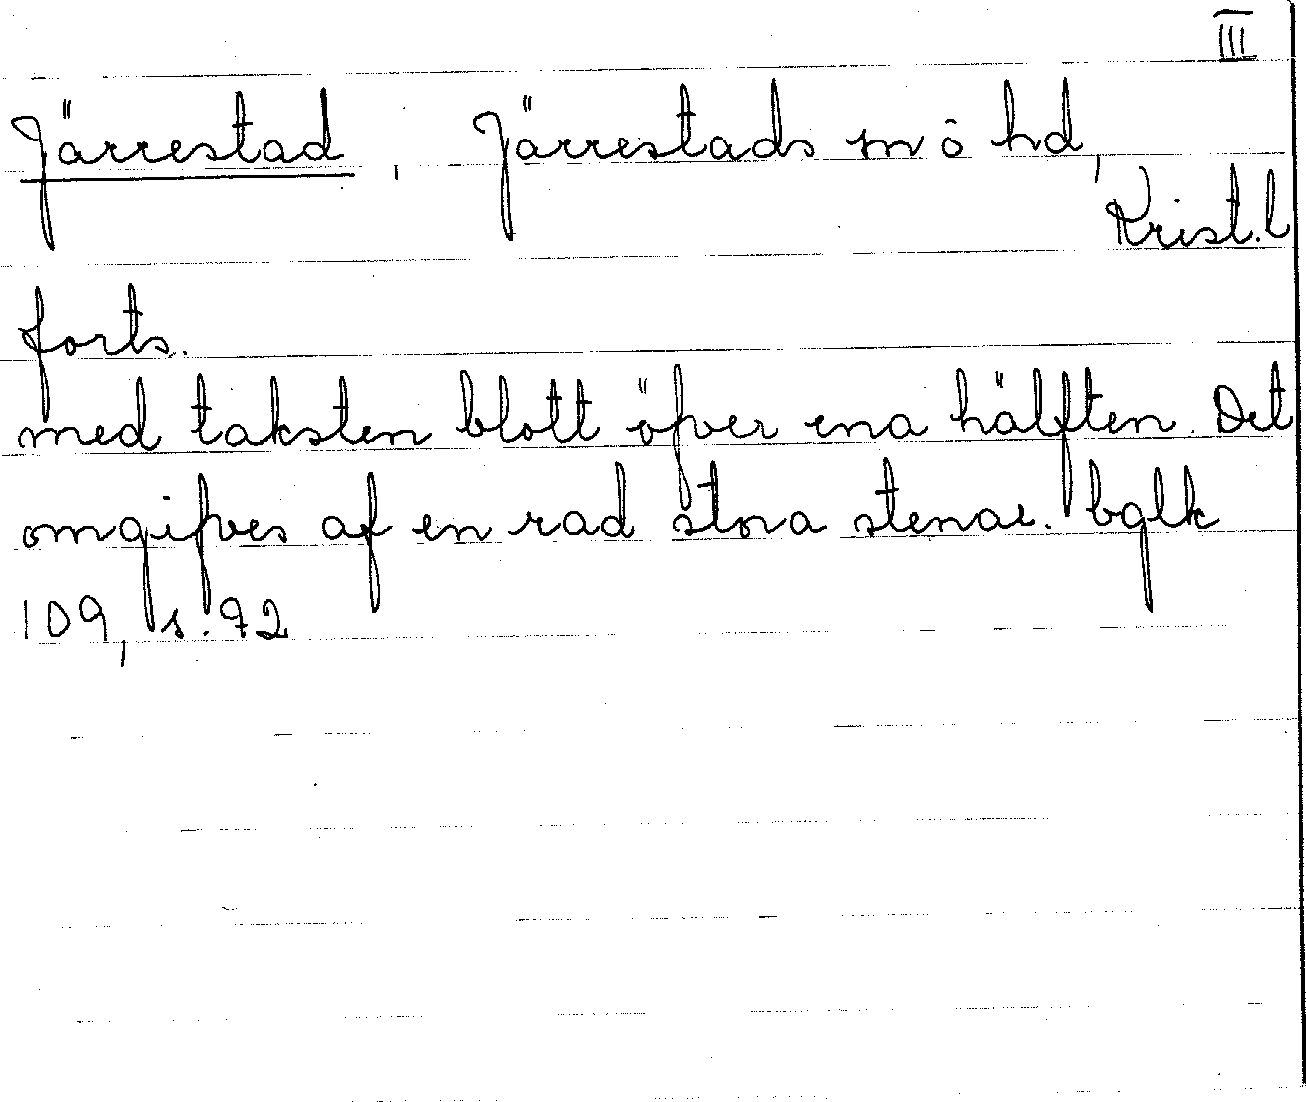 III
Järrestad, Järrestads sn ö hd,
Krist. l
forts.
med taksten blott öfver ena hälften. Det
omgifves af en rad stora stenar. bglk
109, s. 92